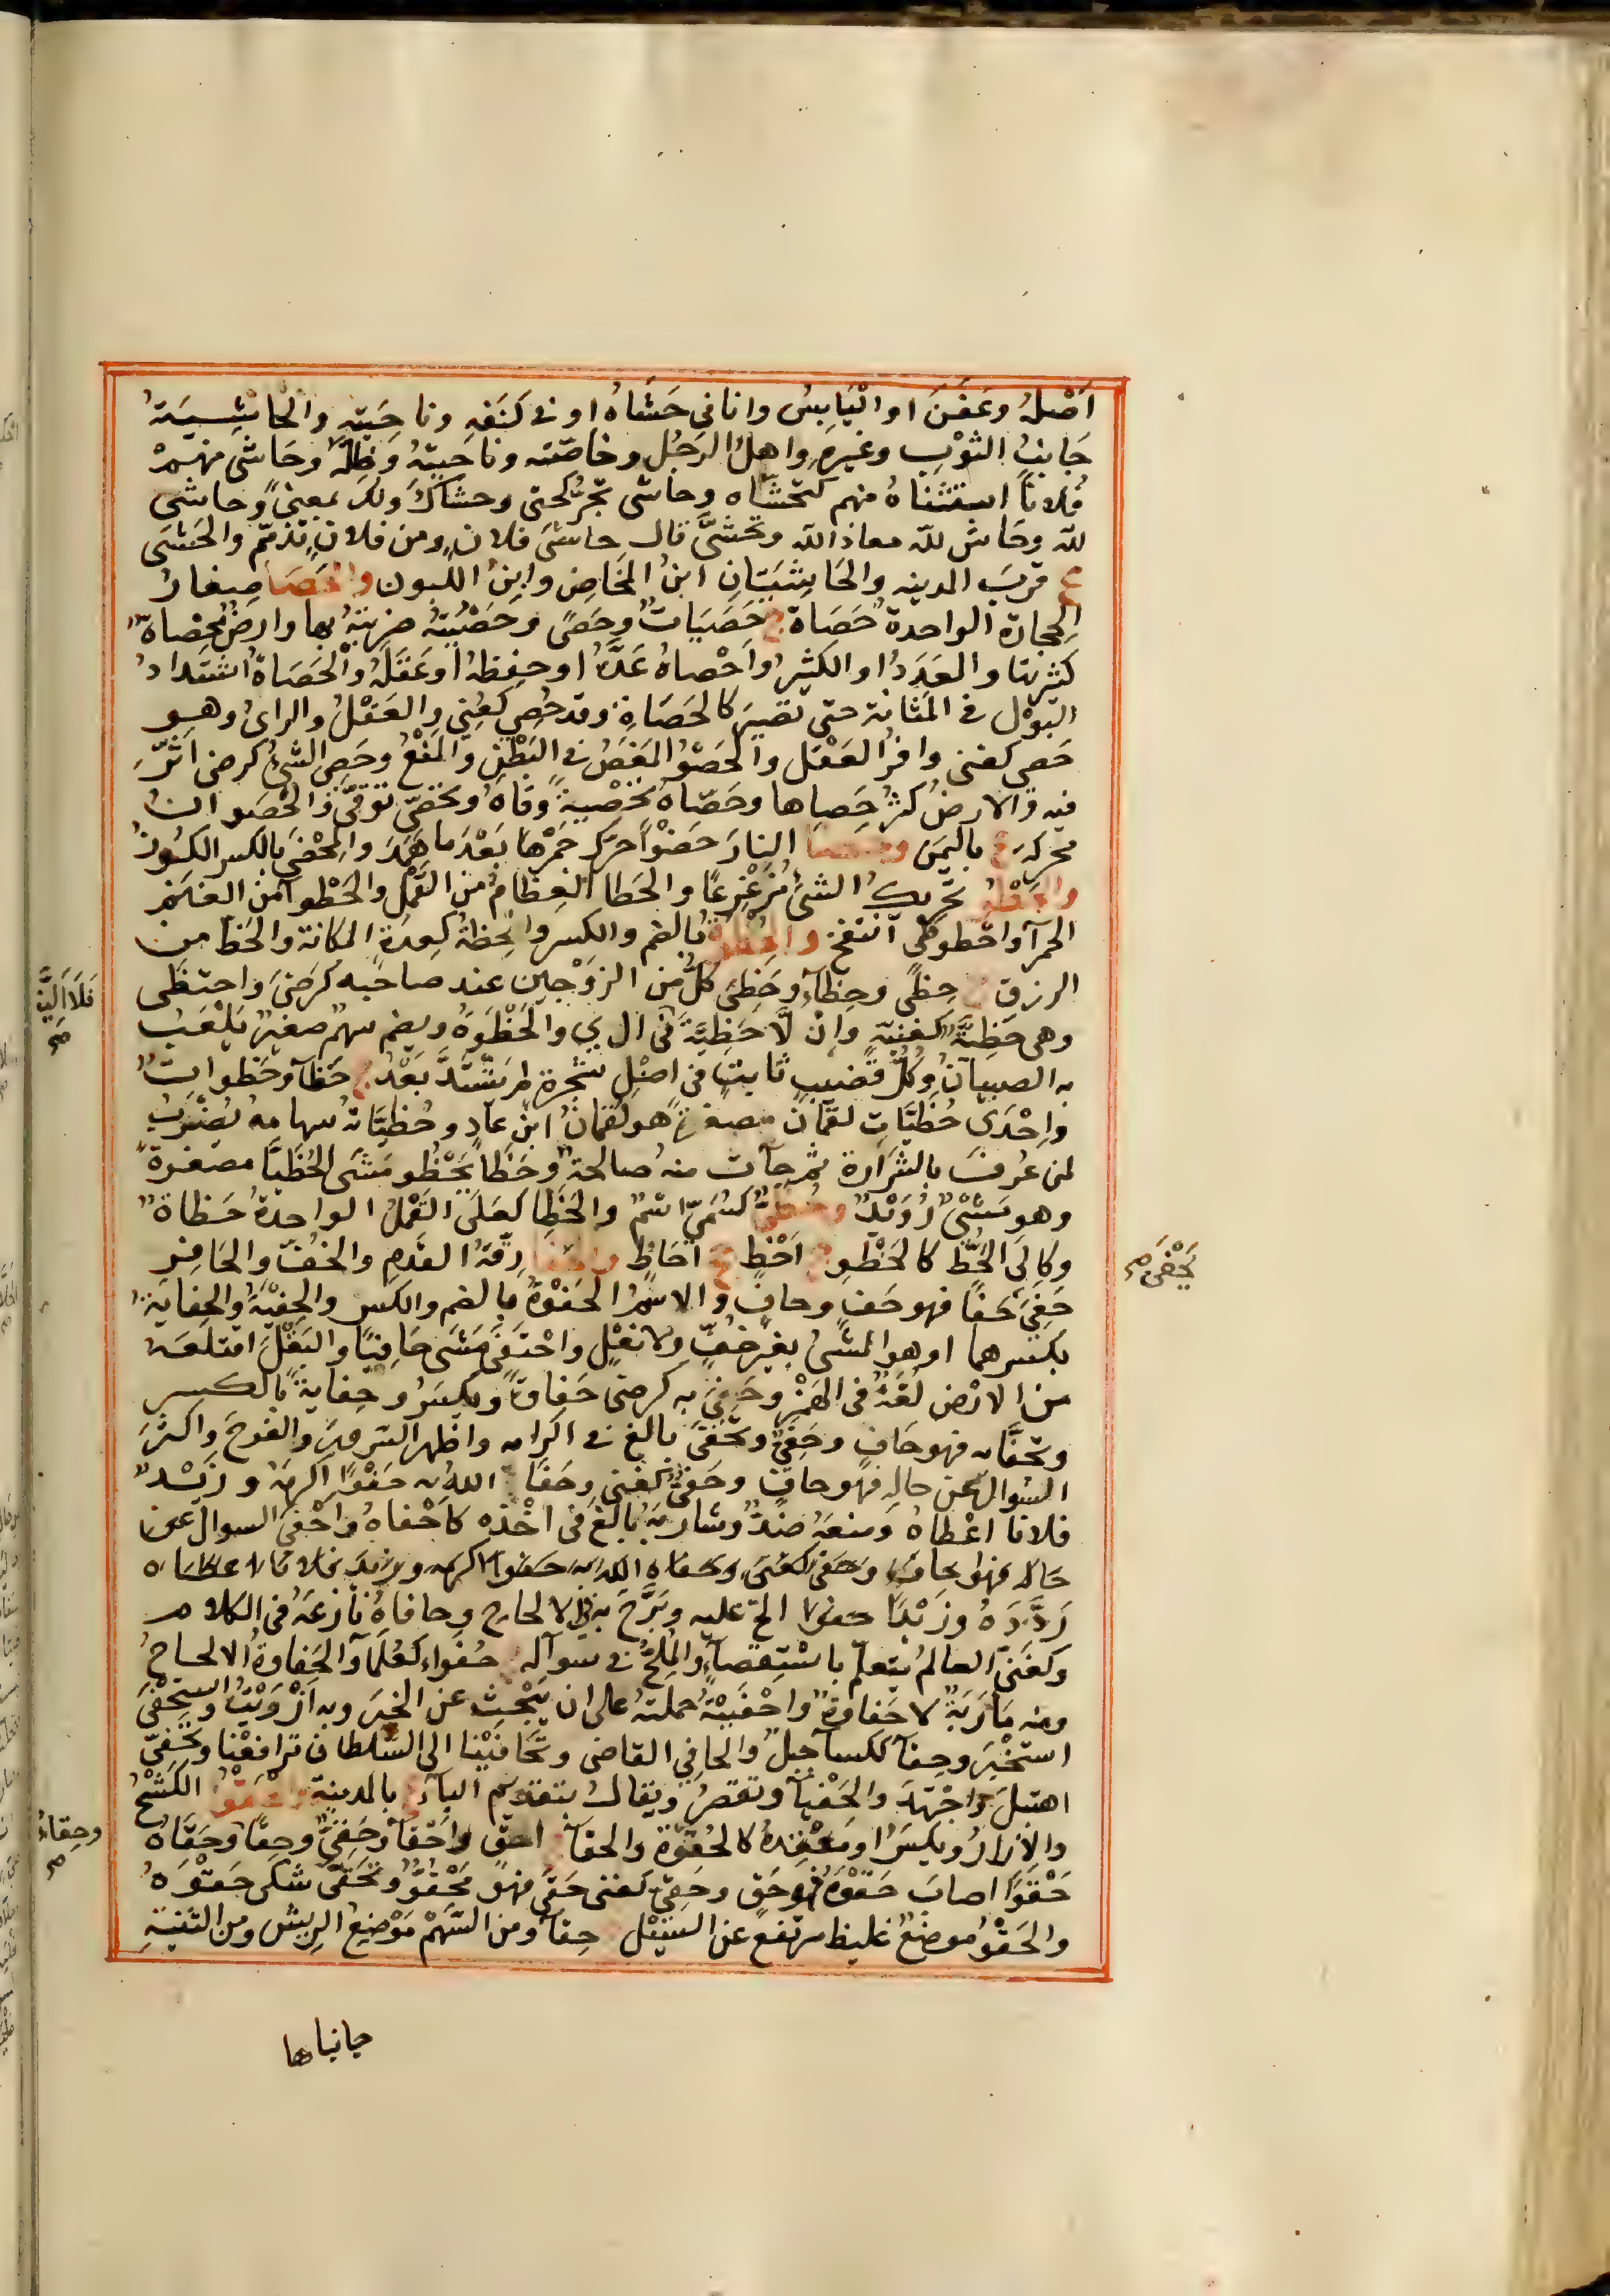 اَصْلُهُ وعَفِنَ او اليَابِسُ وانا فى حَشَاهُ او فى كَنَفِهِ وناحِيَتِهِ والحاشِيَةُ
جَانِبُ الثوْبِ وغيرِهِ واهلُ الرَجُل وخاصّته وناحيَتهُ وظِلهُ وحَاشَى منهم
فُلاناً استثناهُ منهم كتحشّاه وحاشى تجرّ كحتى وحشاك ولك بمعنىً وحاشى
لله وحَاش لله معاذ الله وتحشَّى قال حاشىَ فلان ومن فلانٍ تذمّم والحَشَى
ع قربَ المدينه والحَاشِيَتانِ ابنُ المخَاضِ وابنُ اللبون والحَصَا صِغارُ
الحِجارة الواحدة حَصَاة ج حَصَيَات وحصًى وحَصْيتهُ ضربتهُ بها وارضٌ مَحْصاة
كثيرتها والعَدَدُ او الكثيرُ واَحْصاهُ عَدَّهُ او حفِظهُ او عَقَلهُ والحَصَاةُ اشتدادُ
البَوْل فى المَثَانة حتى تصيرَ كالحَصَاةِ وقد حُصِي كعُنِي والعَقْلُ والراىُ وهو
حَصِي كغنى وافرُ العَقل والحَصْوُ المَغَصُ فى البَطْنِ والمَنْعُ وحَصِى الشئُ كرضى اثّرَ
فيه والارضُ كثرُ حَصاها وحَصّاهُ تحْصِيةً وقاهُ وتحَصّى توقّى والحَصَوان
محركة ع باليَمن وحضا النارَ حَضْواً حرّكَ جَمْرها بَعْدَ ما هَمَدَ والمِحْضَى بالكسر الكُورُ
والحَطْوُ تحريكُ الشئ مُزَعْزِعًا والحَطا العِظامُ من القَمْل والحَطْوا من الغنم
الحمرآ واحطوطى انتفخ والحُظوَةُ بالضم والكسر والحِظةُ كعِدَةٍ المكانة والحَظ من
الرزق ج حِظًى وحِظآءٌ وحَظِى كلٌّ من الزوْجين عند صاحبه كرضىَ واحتظى
وهى حَظِيَّةٌ كغنية وانْ لَّا حَظِيَّةَ فلا اَلِيَّةَ والحَظْوَةُ ويضم سهم صغيرٌ يَلْعَبُ
به الصبيانُ وكُلُّ قضيبٍ ثابتٍ فى اصْلِ شجرةٍ لم يشتدَّ بَعْدُ ج حَظآ وحَظوات
واِحْدَى حُظيَّاتِ لقمان مصغرة هو لقمانُ ابن عادٍ وحُظيَّاته سهامه يُضْرَبُ
لمن عُرفَ بالشَرَارة ثم جآت منه صالحة وحَظَا يَحْظُو مَشَى الحُظَيَّا مصغرةً
وهو مَشْىٌ رُوَيْدٌ وحُظَىٌّ كسُمَىٍّ اسمٌ والحَظا كعَلَى القَمْل الواحدةُ حَظاة
وكإلَى الحَظّ كالحَظْوِ ج اَحْظٍ جج اَحَاظٍ والحَفا رِقّةُ القدَم والخُفّ والحَافِر
حَفِىَ حَفًا فهو حَفٍ وحافٍ والاسمُ الحُفوَةُ بالضم والكسر والحِفْيةُ والحِفايةُ
بكسرهما او هو المَشىُ بغير خُفٍّ ولا نعْلٍ واحْتَفَى مَشَى حَافِيًا والبَقْلَ اقتلعَهُ
من الارْض لُغَةٌ فى الهَمْزِ وحَفِىَ به كرضى حَفاوَةً ويكسَرُ وحِفايةً بالكسر
وتحفَّا به فهو حَافٍ وحَفِىٌّ وتحَفّى بالغ فى اكرامه واظهر السرورَ والفرحَ واكثرَ
السُوال عن حاله فهو حافٍ وحَفىٌّ كغنى وحَفَا اللهُ به حَفْوًا اكرمَهُ وزَيْد
فلاناً اعْطاهُ ومنعَهُ ضدٌّ وشاربَهُ بالغَ فى اخْذه كاَحْفاهُ واَحْفَى السوال عن
حاله فهو حافٍ وحَفىٌّ كغنى وحفاه الله به حفوا اكرمه وزيد فلانا اعطاه
رَدَّدَهُ وزَيْدًا الحّ عليه وبَرَّحَ به فى الالحاح وحافاهُ نازعَهُ فى الكلام
وكغَنىّ العالمُ يتعلّم باسْتِقصآءٍ والمُلِحُّ فى سوآله ج حُفَواء كعُلَمآ والحَفاوةُ الالحاحُ
ومنه مَاْرَبةٌ لا حَفاوةٌ واحْفَيْتهُ حملتهُ على ان يَبْحثَ عن الخبَر وبه اَزْرَيْتُ واستحْفَى
استخْبَرَ وحِفآ ككسآ جبلٌ والحافِى القاضى وتحَافَيْنا الى السُّلطان ترافعْنا وتحَفّى
اهتبلَ واجْتهدَ والحَفْيآ وتقصرُ ويقال بتقديم اليآء ع بالمدينة والحَقْوُ الكَشْحُ
والازارُ ويكسَرُ او مَعْقِدهُ كالحَقوَة والحقآ ج احقٍ واَحْقآ وحُقِىٌّ وحِقآ وحَقَاهُ
حَقْوًا اصابَ حَقْوَهُ فهو حَقٍ وحُقِىَ كعُنى حَقًى فهو مَحْقُوٌّ وتحَقّى شكى حَقوَهُ
والحَقْوُ موضعٌ غليظ مرتفع عن السَيْل ج حِقآ ومن السَّهْمِ مَوْضِعُ الريش ومن الثنيّةِ
جانباها
فَلَا اَلِيَّةَ صح
يَحْفَى صح
وحِقاءُ صح